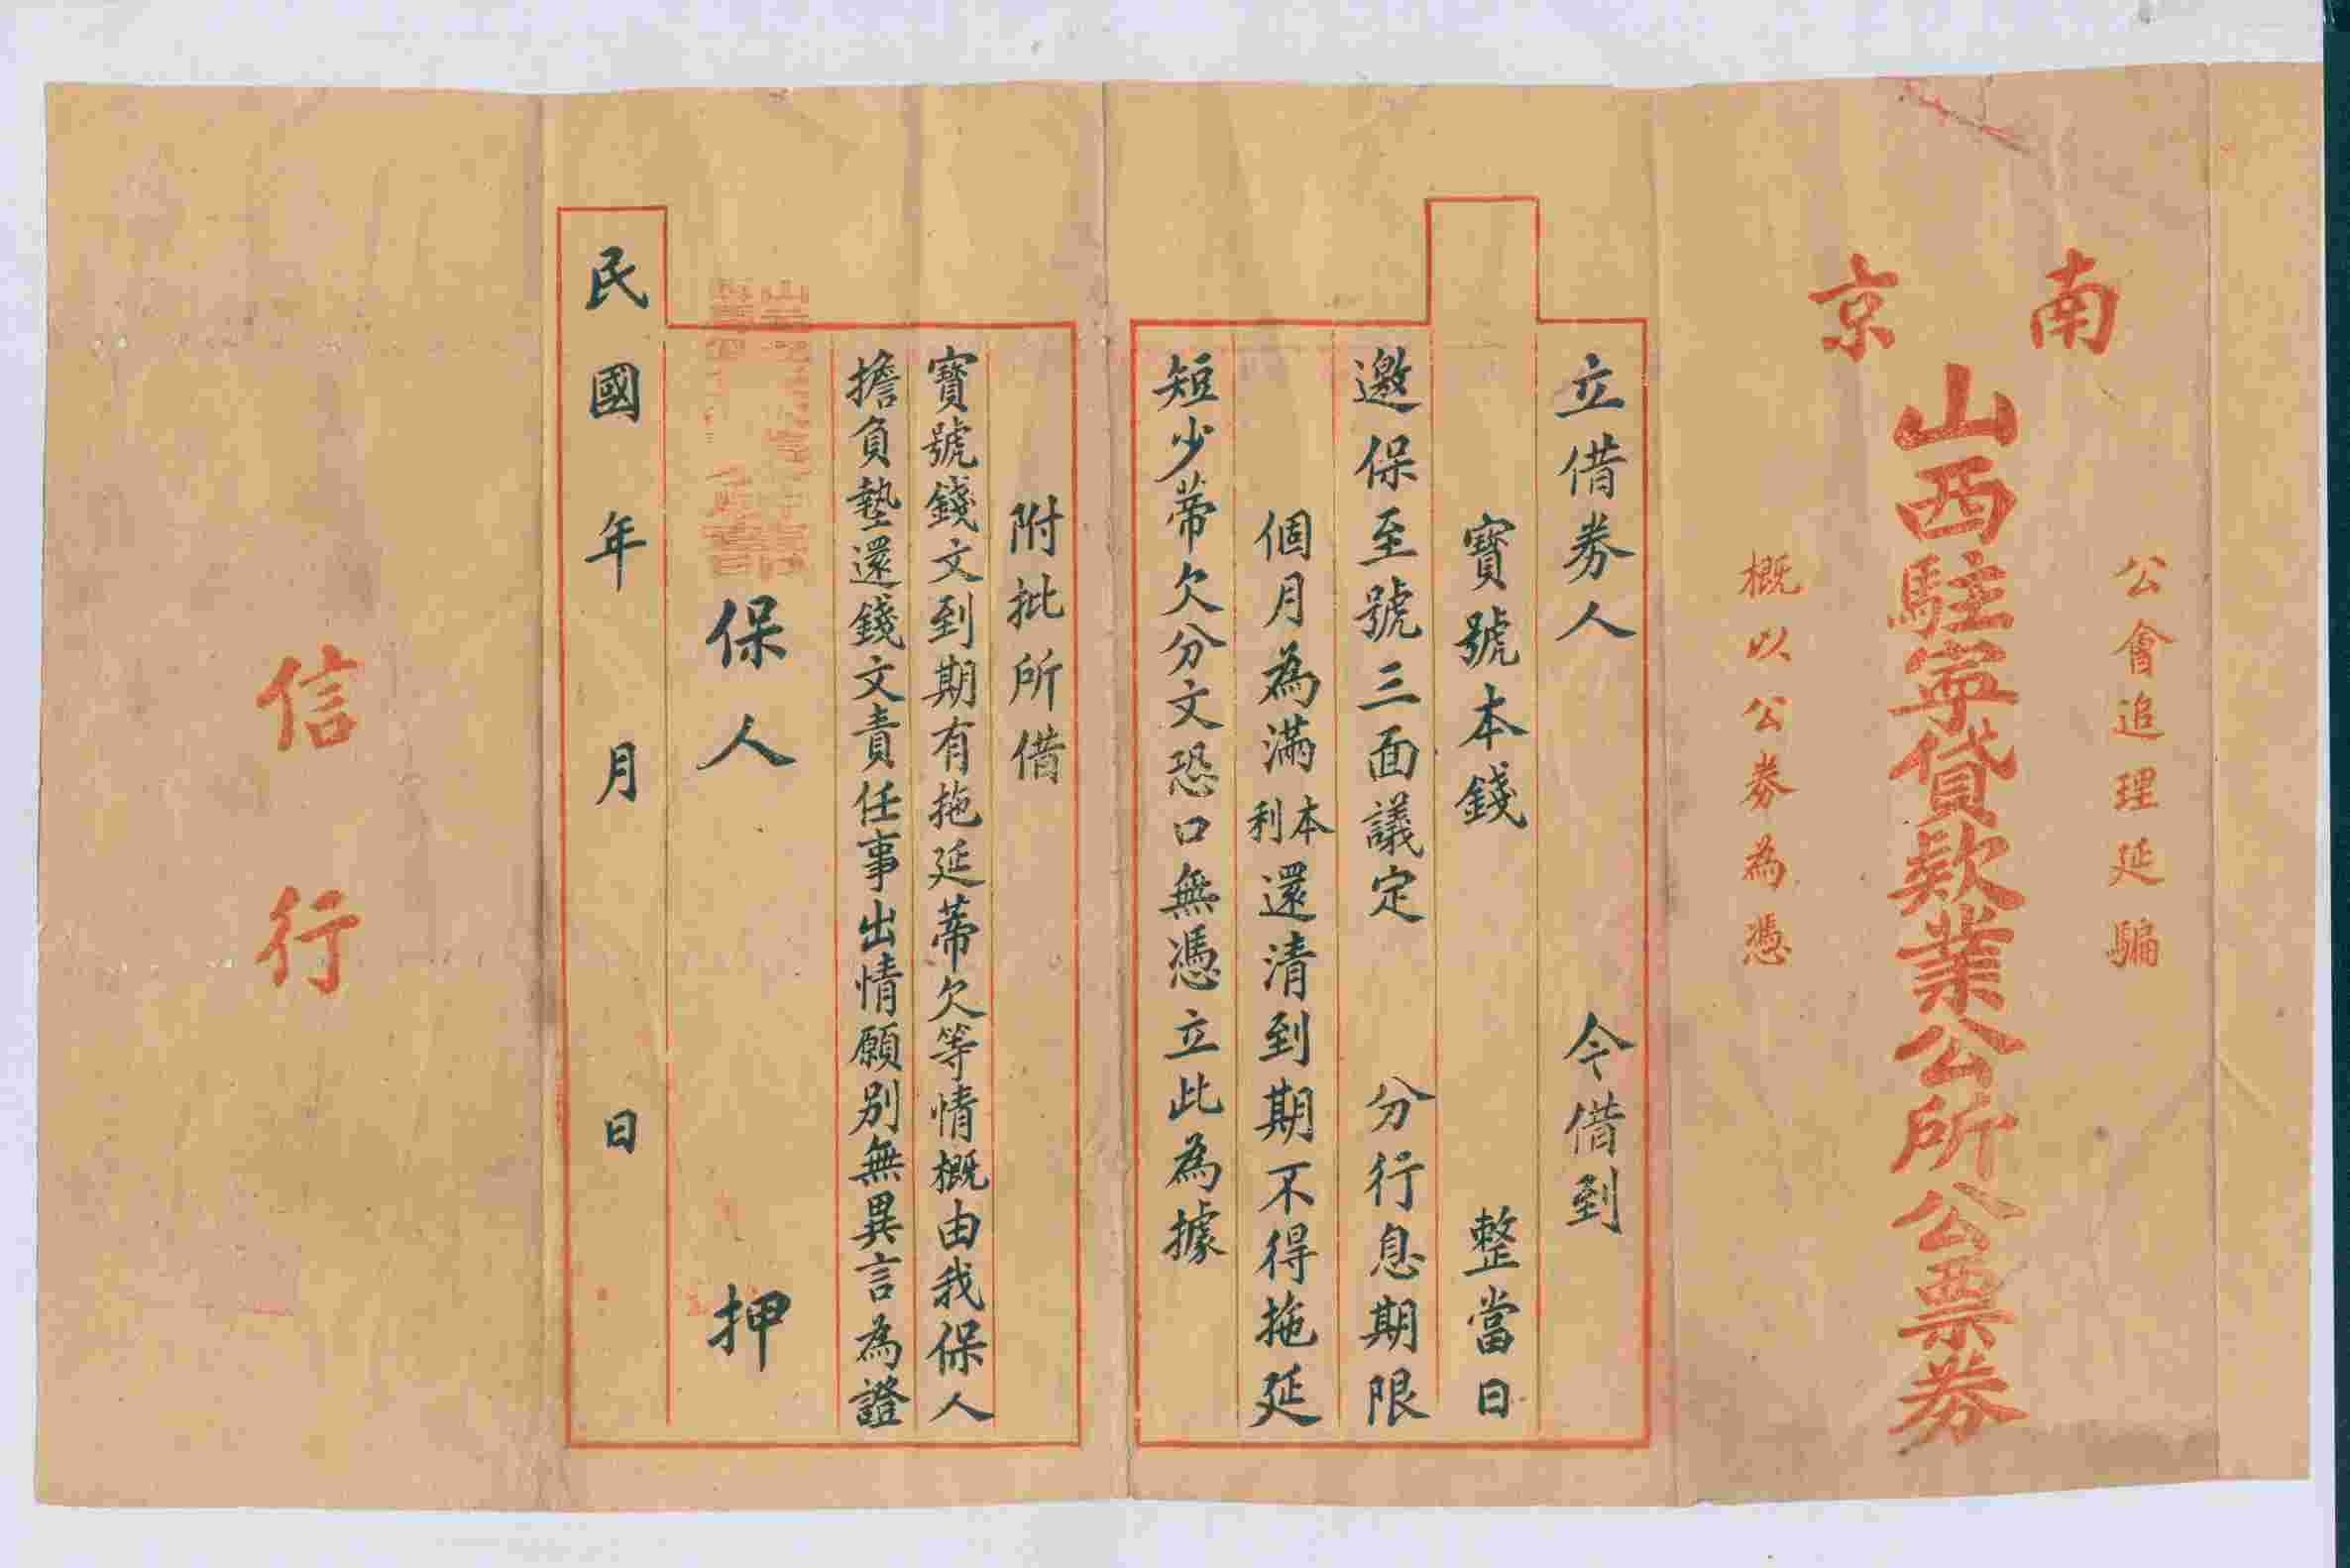 南京
公會追理延騙
山西駐寧貸欵業公所公票券
概以公券為憑
立借券人 今借到
寶號本錢 整當日
邀保至號三面議定 分行息期限
個月為滿本利還清到期不得拖延
短少蒂欠分文恐口無憑立此為據
附批所借
寶號錢文到期有拖延蒂欠等情概由我保人
擔負墊還錢文責任事出情願別無異言為證
保人 押
民國 年 月 日
信行